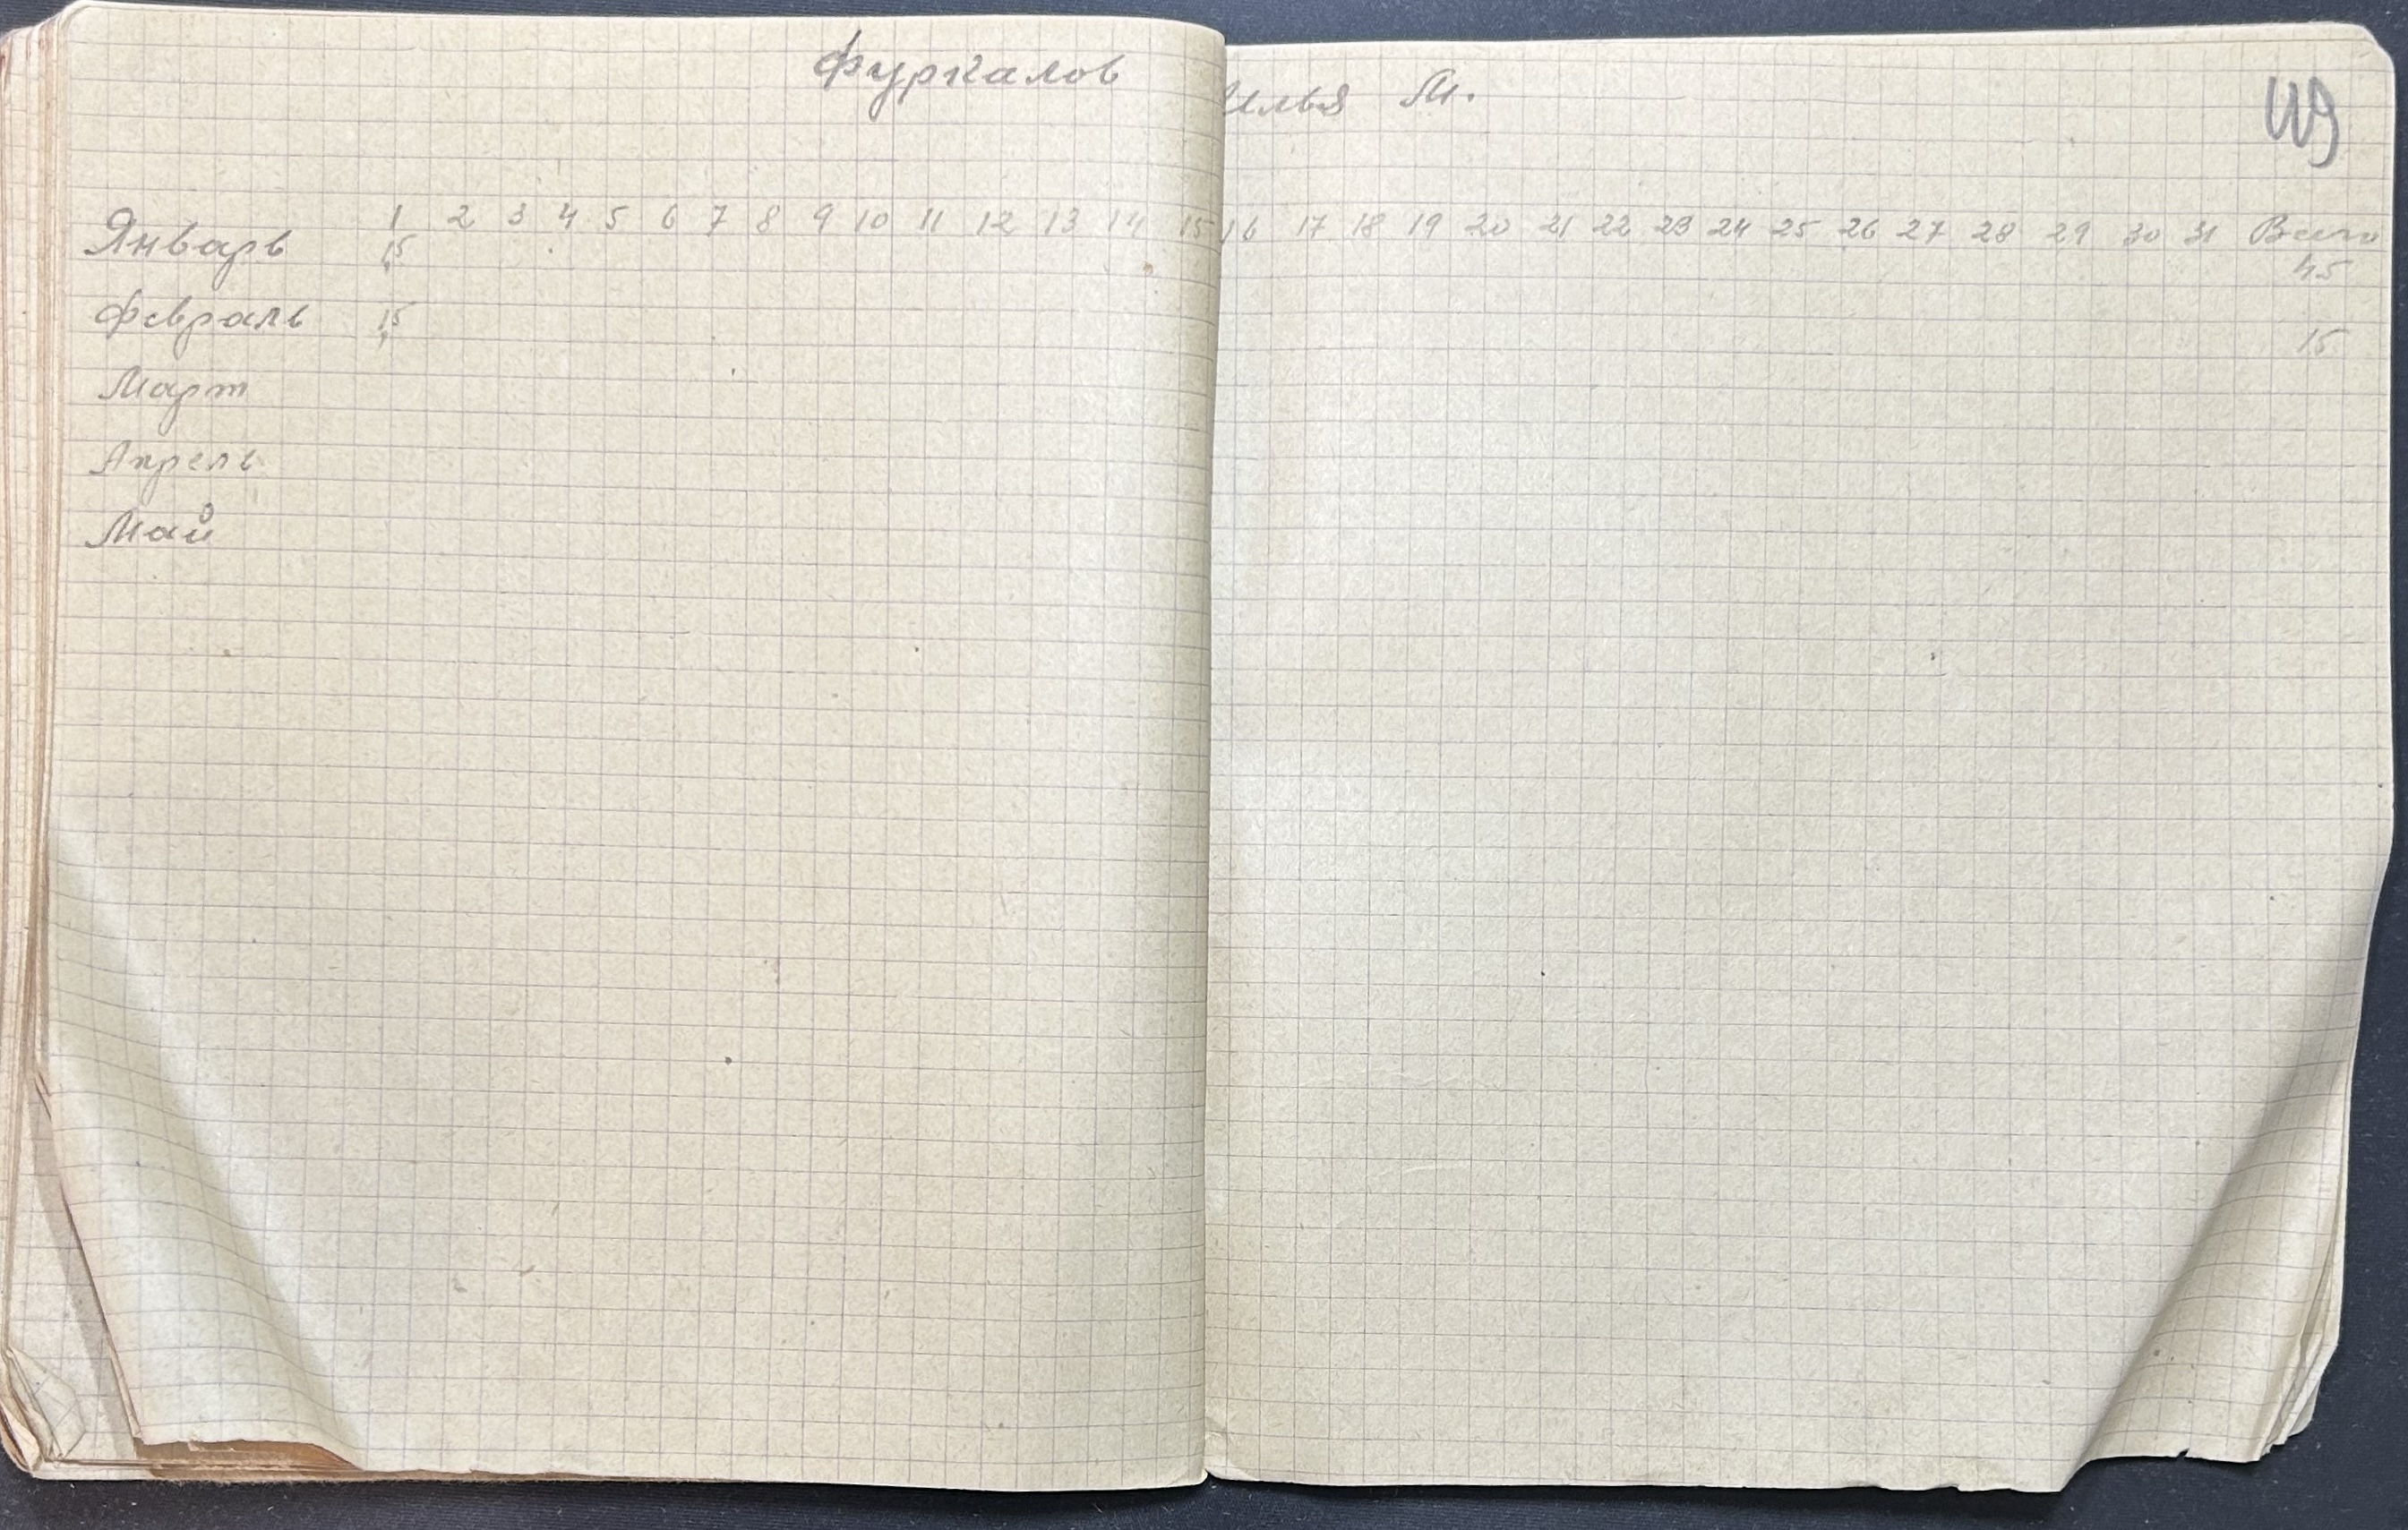 Фуркалов Илья М.
119
1 2 3 4 5 6 7 8 9 10 11 12 13 14 15 16 17 18 19 20 21 22 23 24 25 26 27 28 29 30 31 Всего
Январь 15 45
Февраль 15 15
Март
Апрель
Май